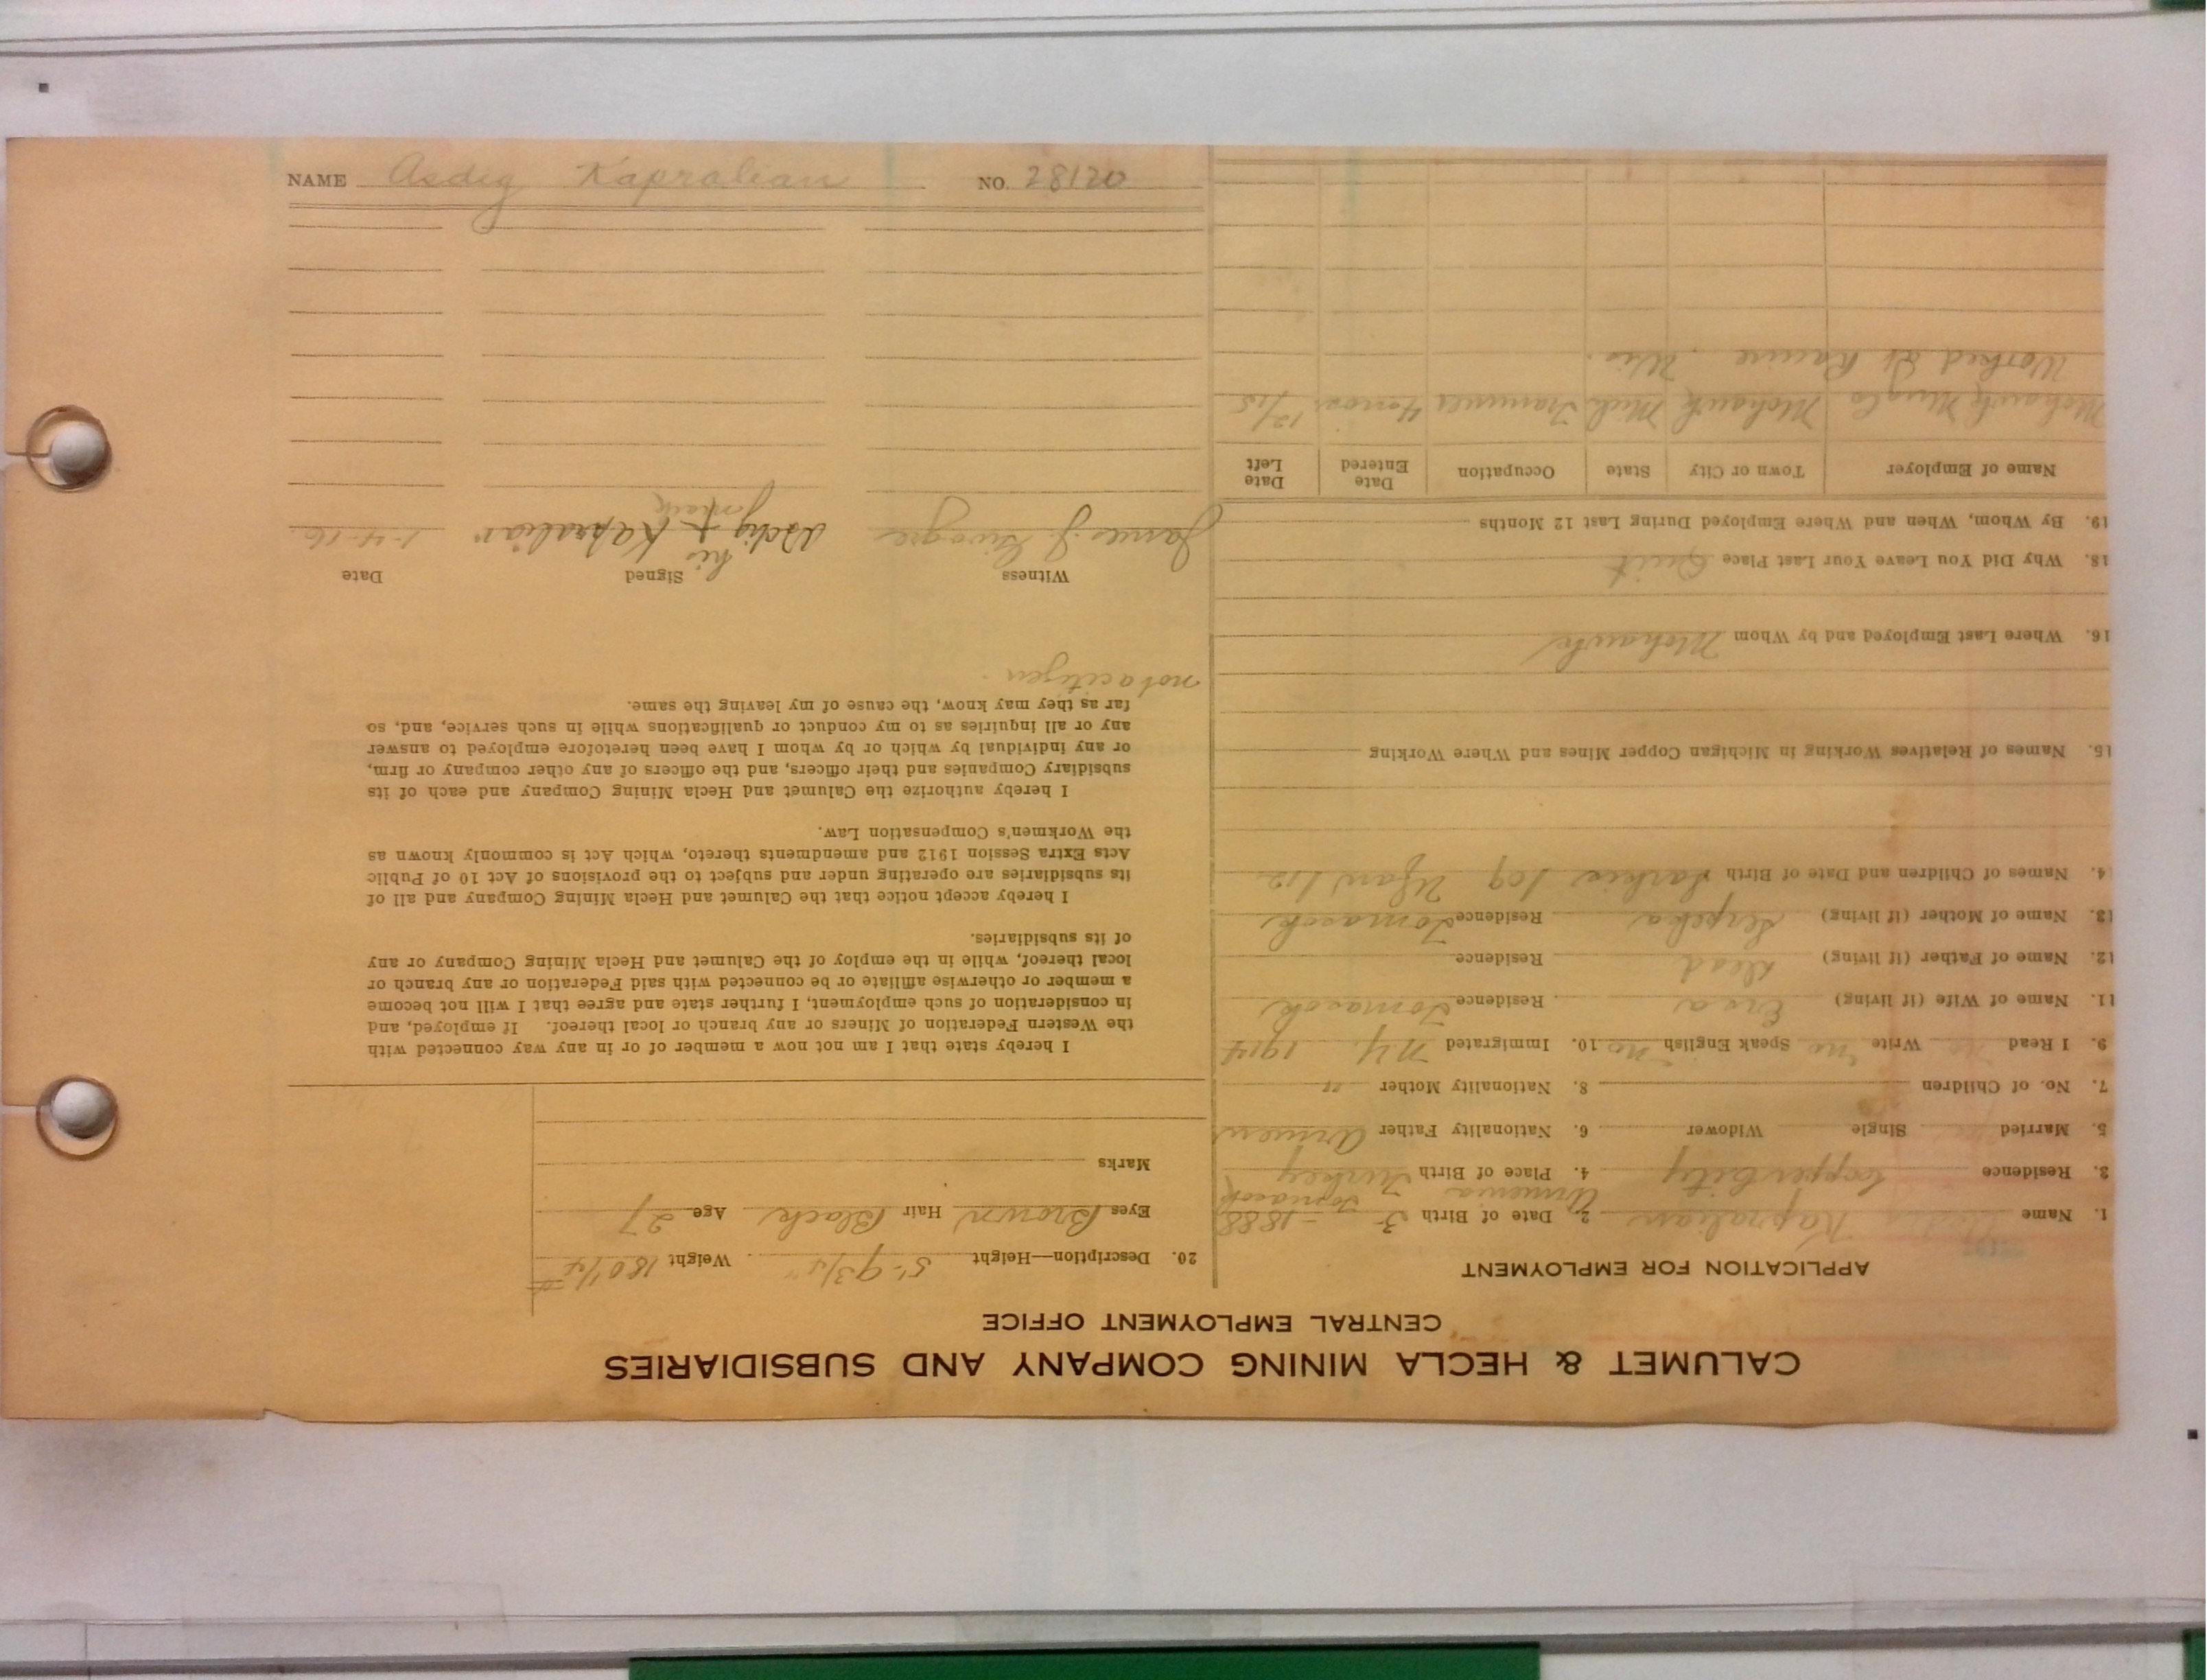 NAME Asdig Kapralian NO. 28120
CALUMET & HECLA MINING COMPANY AND SUBSIDIARIES
CENTRAL EMPLOYMENT OFFICE
APPLICATION FOR EMPLOYMENT
1. Name Asdig Kapralian 2. Date of Birth 3 - 1888
Armenia Tomacok
3. Residence Copper City 4. Place of Birth Turkey
5. Married Single Widower 6. Nationality Father Armen
7. No. of Children 8. Nationality Mother "
9. I Read no Write no Speak English no 10. Immigrated N.Y. 1914
11. Name of Wife (if living) Erva Residence Tomacok
12. Name of Father (if living) Dead Residence
13. Name of Mother (if living) Residence Tomacok
4. Names of Children and Date of Birth Sarkis /09 /12
15. Names of Relatives Working in Michigan Copper Mines and Where Working
16. Where Last Employed and by Whom Mohawk
18. Why Did You Leave Your Last Place Quit
19. By Whom, When and Where Employed During Last 12 Months
Name of Employer Town or City State Occupation Date Entered Date Left
Mohawk Mohawk Mich Trammer 4 mos 12/15
Worked at Racine, Wis.
20. Description—Height 5'-9 3/4" Weight 180 1/4 #
Eyes Brown Hair Black Age 27
Marks
I hereby state that I am not now a member of or in any way connected with
the Western Federation of Miners or any branch or local thereof. If employed, and
in consideration of such employment, I further state and agree that I will not become
a member or otherwise affiliate or be connected with said Federation or any branch or
local thereof, while in the employ of the Calumet and Hecla Mining Company or any
of its subsidiaries.
I hereby accept notice that the Calumet and Hecla Mining Company and all of
its subsidiaries are operating under and subject to the provisions of Act 10 of Public
Acts Extra Session 1912 and amendments thereto, which Act is commonly known as
the Workmen's Compensation Law.
I hereby authorize the Calumet and Hecla Mining Company and each of its
subsidiary Companies and their officers, and the officers of any other company or firm,
or any individual by which or by whom I have been heretofore employed to answer
any or all inquiries as to my conduct or qualifications while in such service, and, so
far as they may know, the cause of my leaving the same.
not a citizen.
Witness Signed Date
his
James J. Asdig x Kapralian 1-4-16
mark